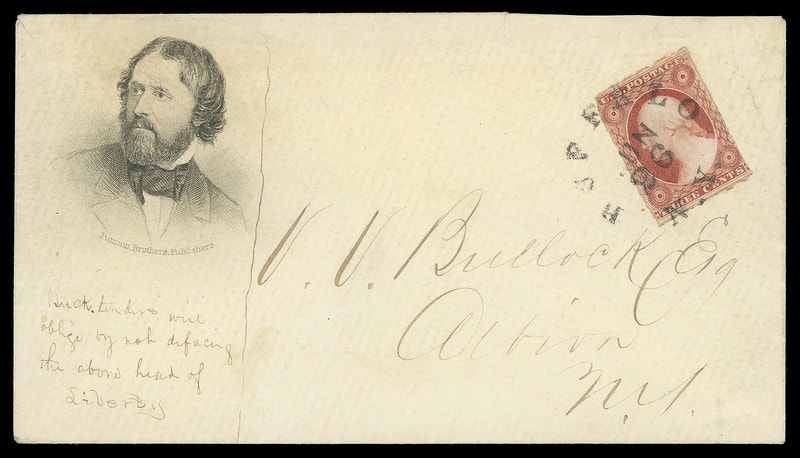 Putnam Brothers, Publishers.
Buck. tenders will
oblige by not defacing
the above head of
Liberty
U.S. POSTAGE
THREE CENTS
N.Y.
V. V. Bullock Esq
Albion
N.Y.